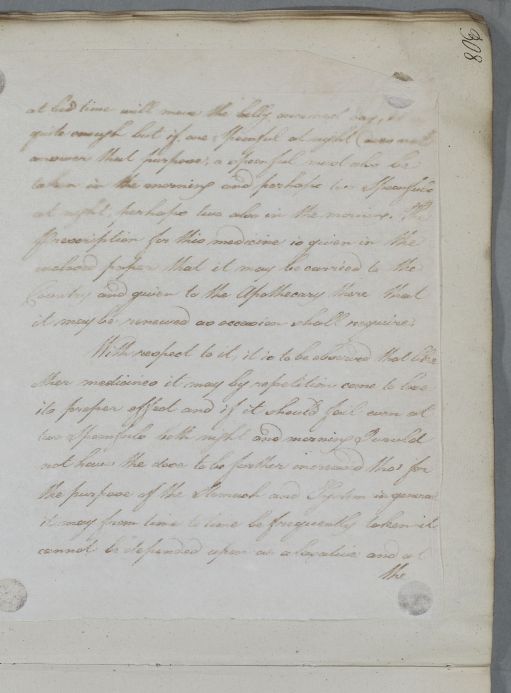 308
at bed time will move the belly once next day, it is
quite enough but if one Spoonful at night does not
answer that purpose, a spoonful must also be
taken in the morning and perhaps two Spoonfuls
at night, perhaps two also in the morning. The
Prescription for this medicine is given in the
inclosed paper that it may be carried to the
Country and given to the Apothecary there that
it may be renewed as occasion shall require.
With respect to it, it is to be observed that like
other medicines it may by repetition come to lose
its proper effect and if it should fail even at
two Spoonfuls both night and morning I would
not have the dose to be further increased tho' for
the purpose of the Stomach and System in general
it may from time to time be frequently taken it
cannot be depended upon as a laxative and at
the